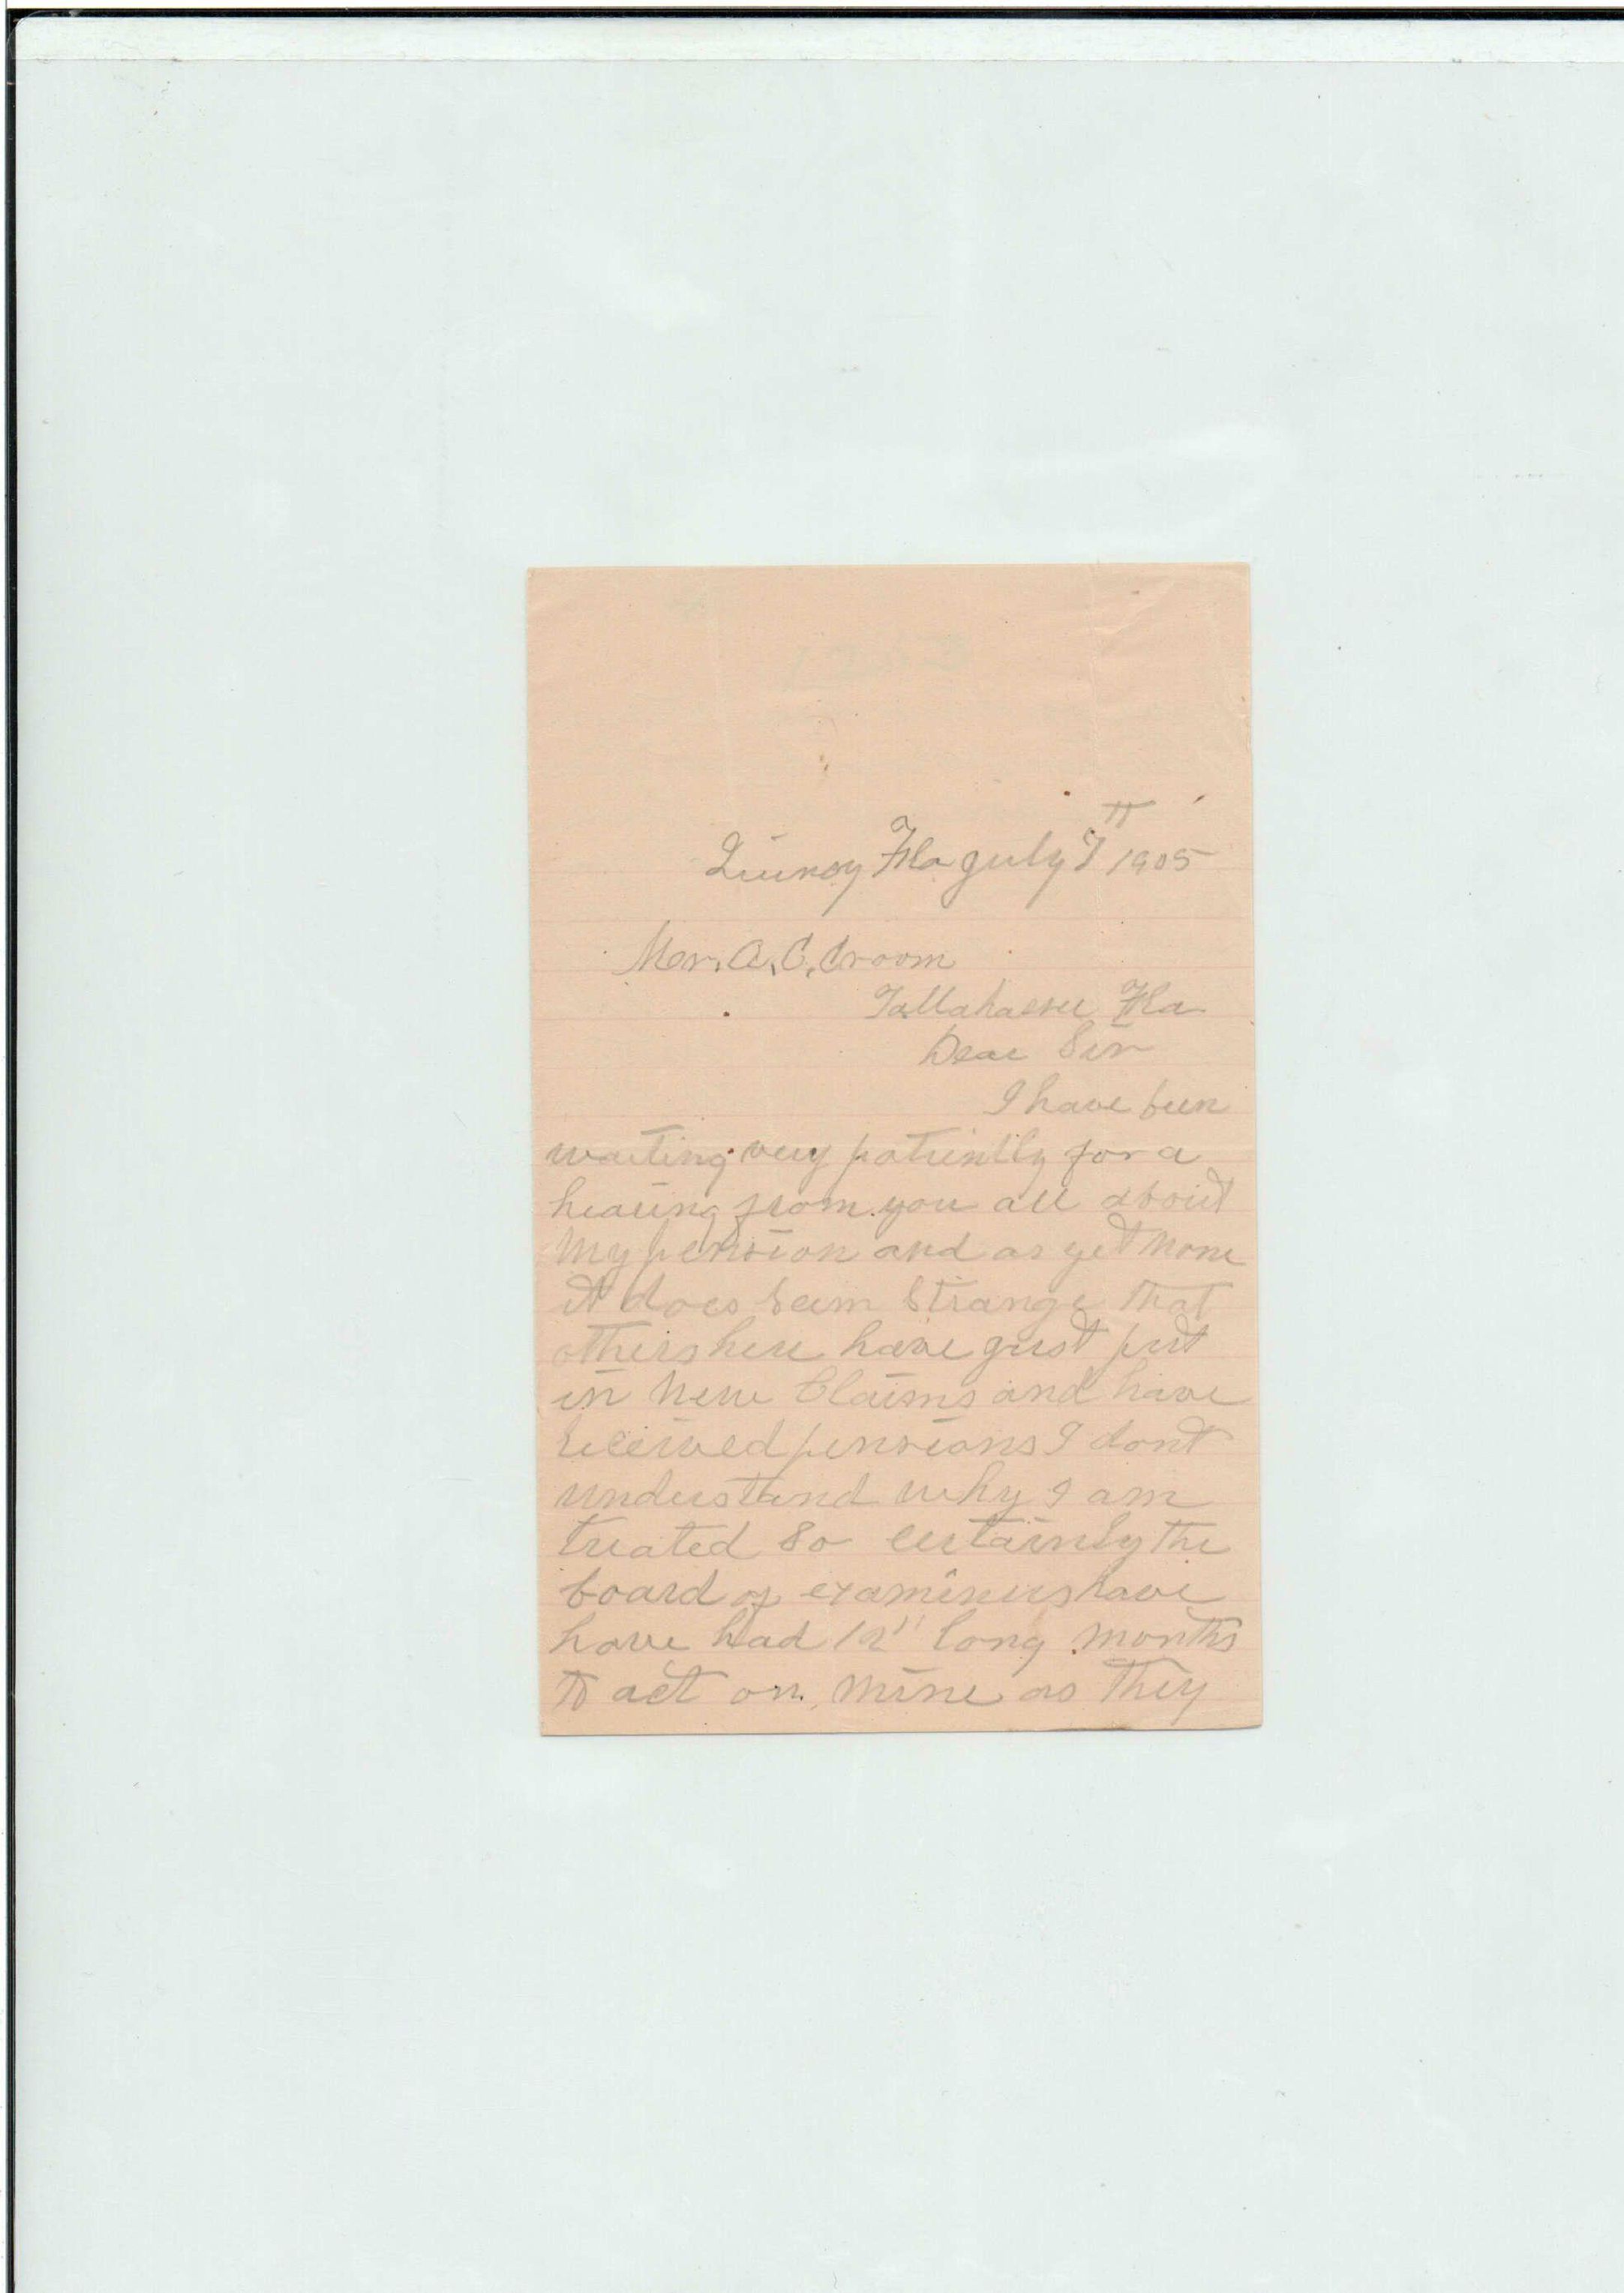 Quincy Fla July 7th 1905
Mr. A. C. Croom
Tallahassee Fla
Dear Sir
I have been
waiting very patiently for a
hearing from you all about
my pension and as yet none
it does seem strange that
others here have just put
in new Claims and have
received pensions I dont
understand why I am
treated so certainly the
board of examiners have
have had 12" long months
to act on mine as they